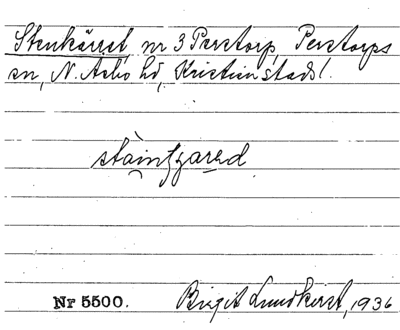 Stenkärret, nr 3 Perstorp, Perstorps
sn, N. Åsbo hd, Kristianstads l.
Nr 5500. Birgit Lundkvist, 1936